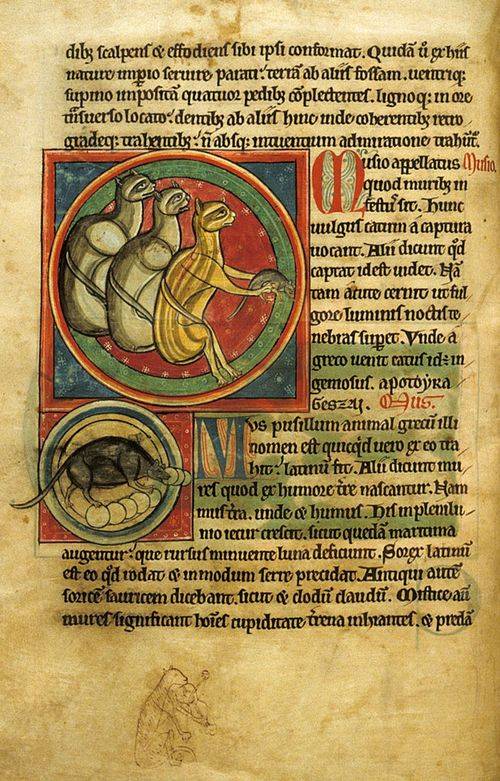 dibꝫ scalpens & effodiens sibi ipsi conformat. Quidā ũ ex hiis
nature imp̄io seruire parati. terrā ab aliis fossam. uentriq;
supino impositā quatuor pedibꝫ cōplectentes. lignoq; in ore
t̃nsuerso locato. dentibꝫ ab aliis hinc inde coherentibꝫ retro
gradeq; trahentibꝫ. ñ absq; intuentium admiratione trahūt̃.
Musio appellatus Musio.
quod muribꝫ in
festus sit. Hunc
uulgus catum a captura
uocant. Alii dicunt qd̃
captat id est uidet. Nā
tam acute cernit ut ful
gore luminis noctis te
nebras sup̄et. Vnde a
greco uenit catus id: in
geniosus. apotoyka
geszai. Mus.
Mus pusillum animal grecū illi
nomen est quicq̇d uero ex eo tra
hit. latinū fit. Alii dicunt mu
res quod ex humore t̄re nascantur. Nam
mus t̄ra. unde & humus. His in plenilu
nio iecur crescit. sicut quedā maritima
augentur. que rursus minuente luna deficiunt. Sorex latinū
est eo q̇d rodat & in modum serre precidat. Antiqui autē
soricē sauricem dicebant. sicut & clodū claudū. Mistice autē
mures significant hoīes cupiditate t̄rena inhiantes. & predā